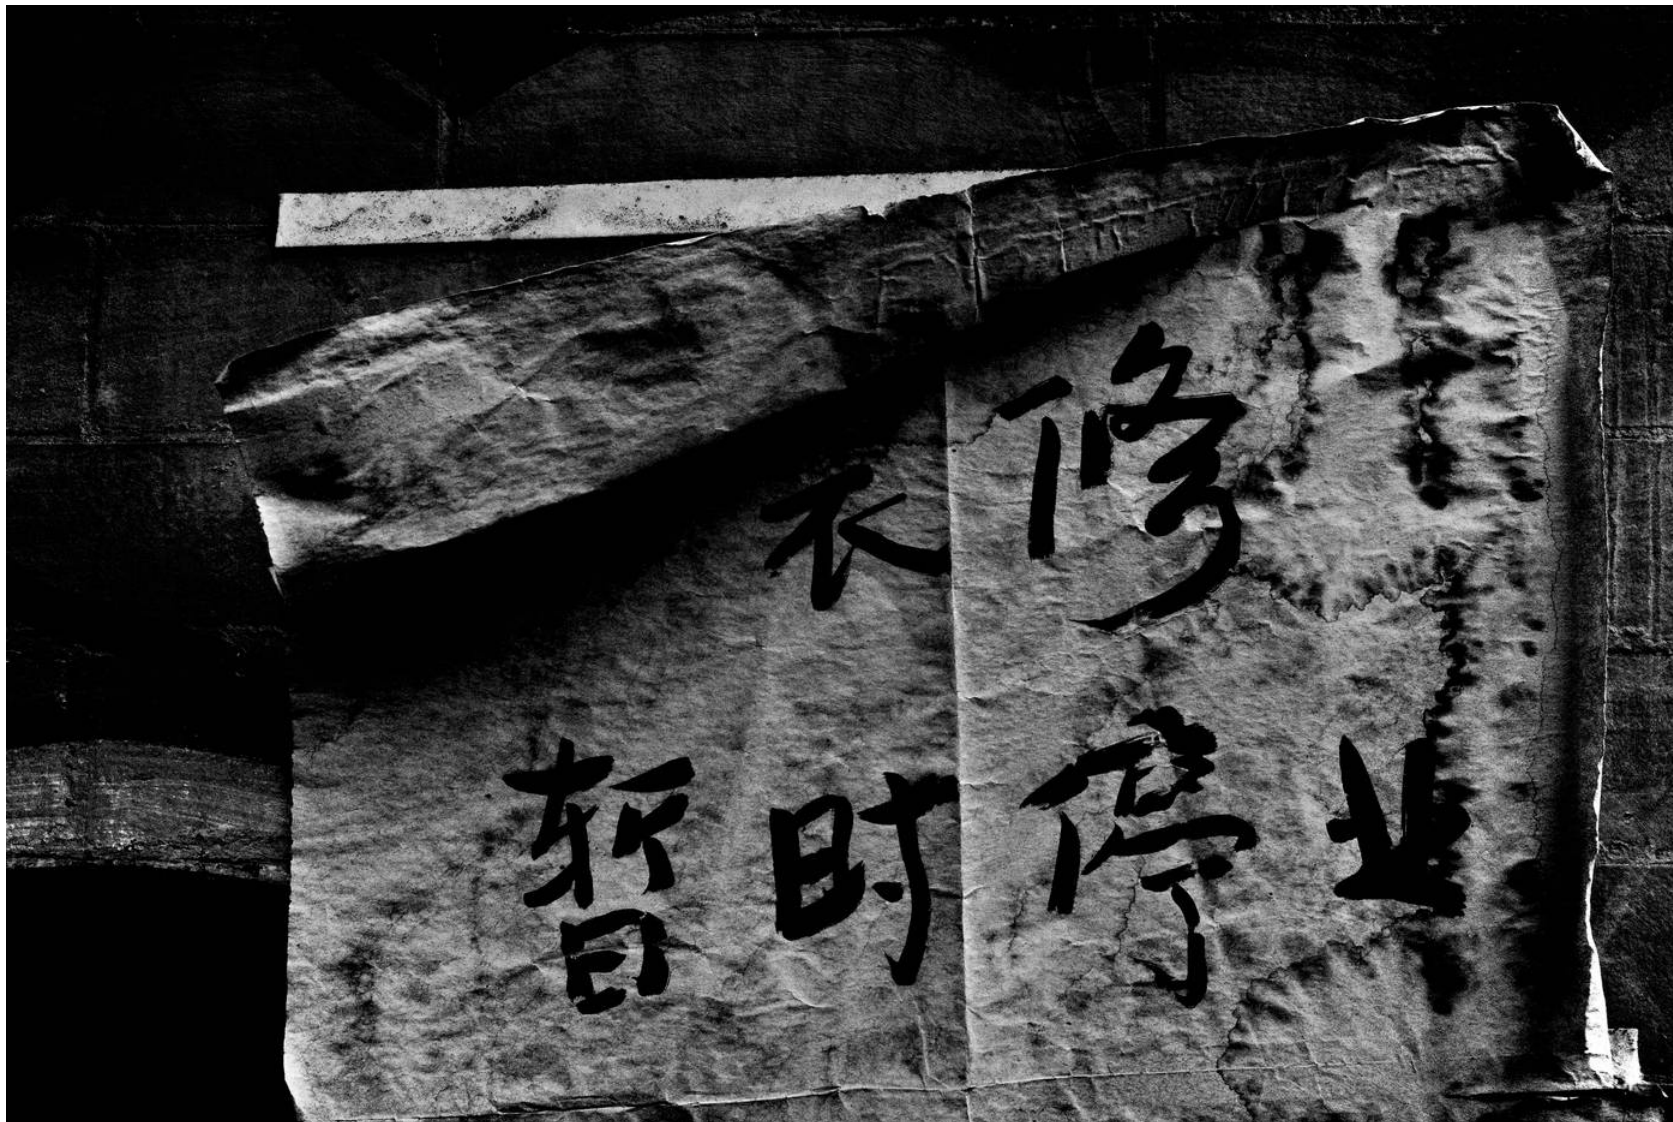 装修
暂时停业